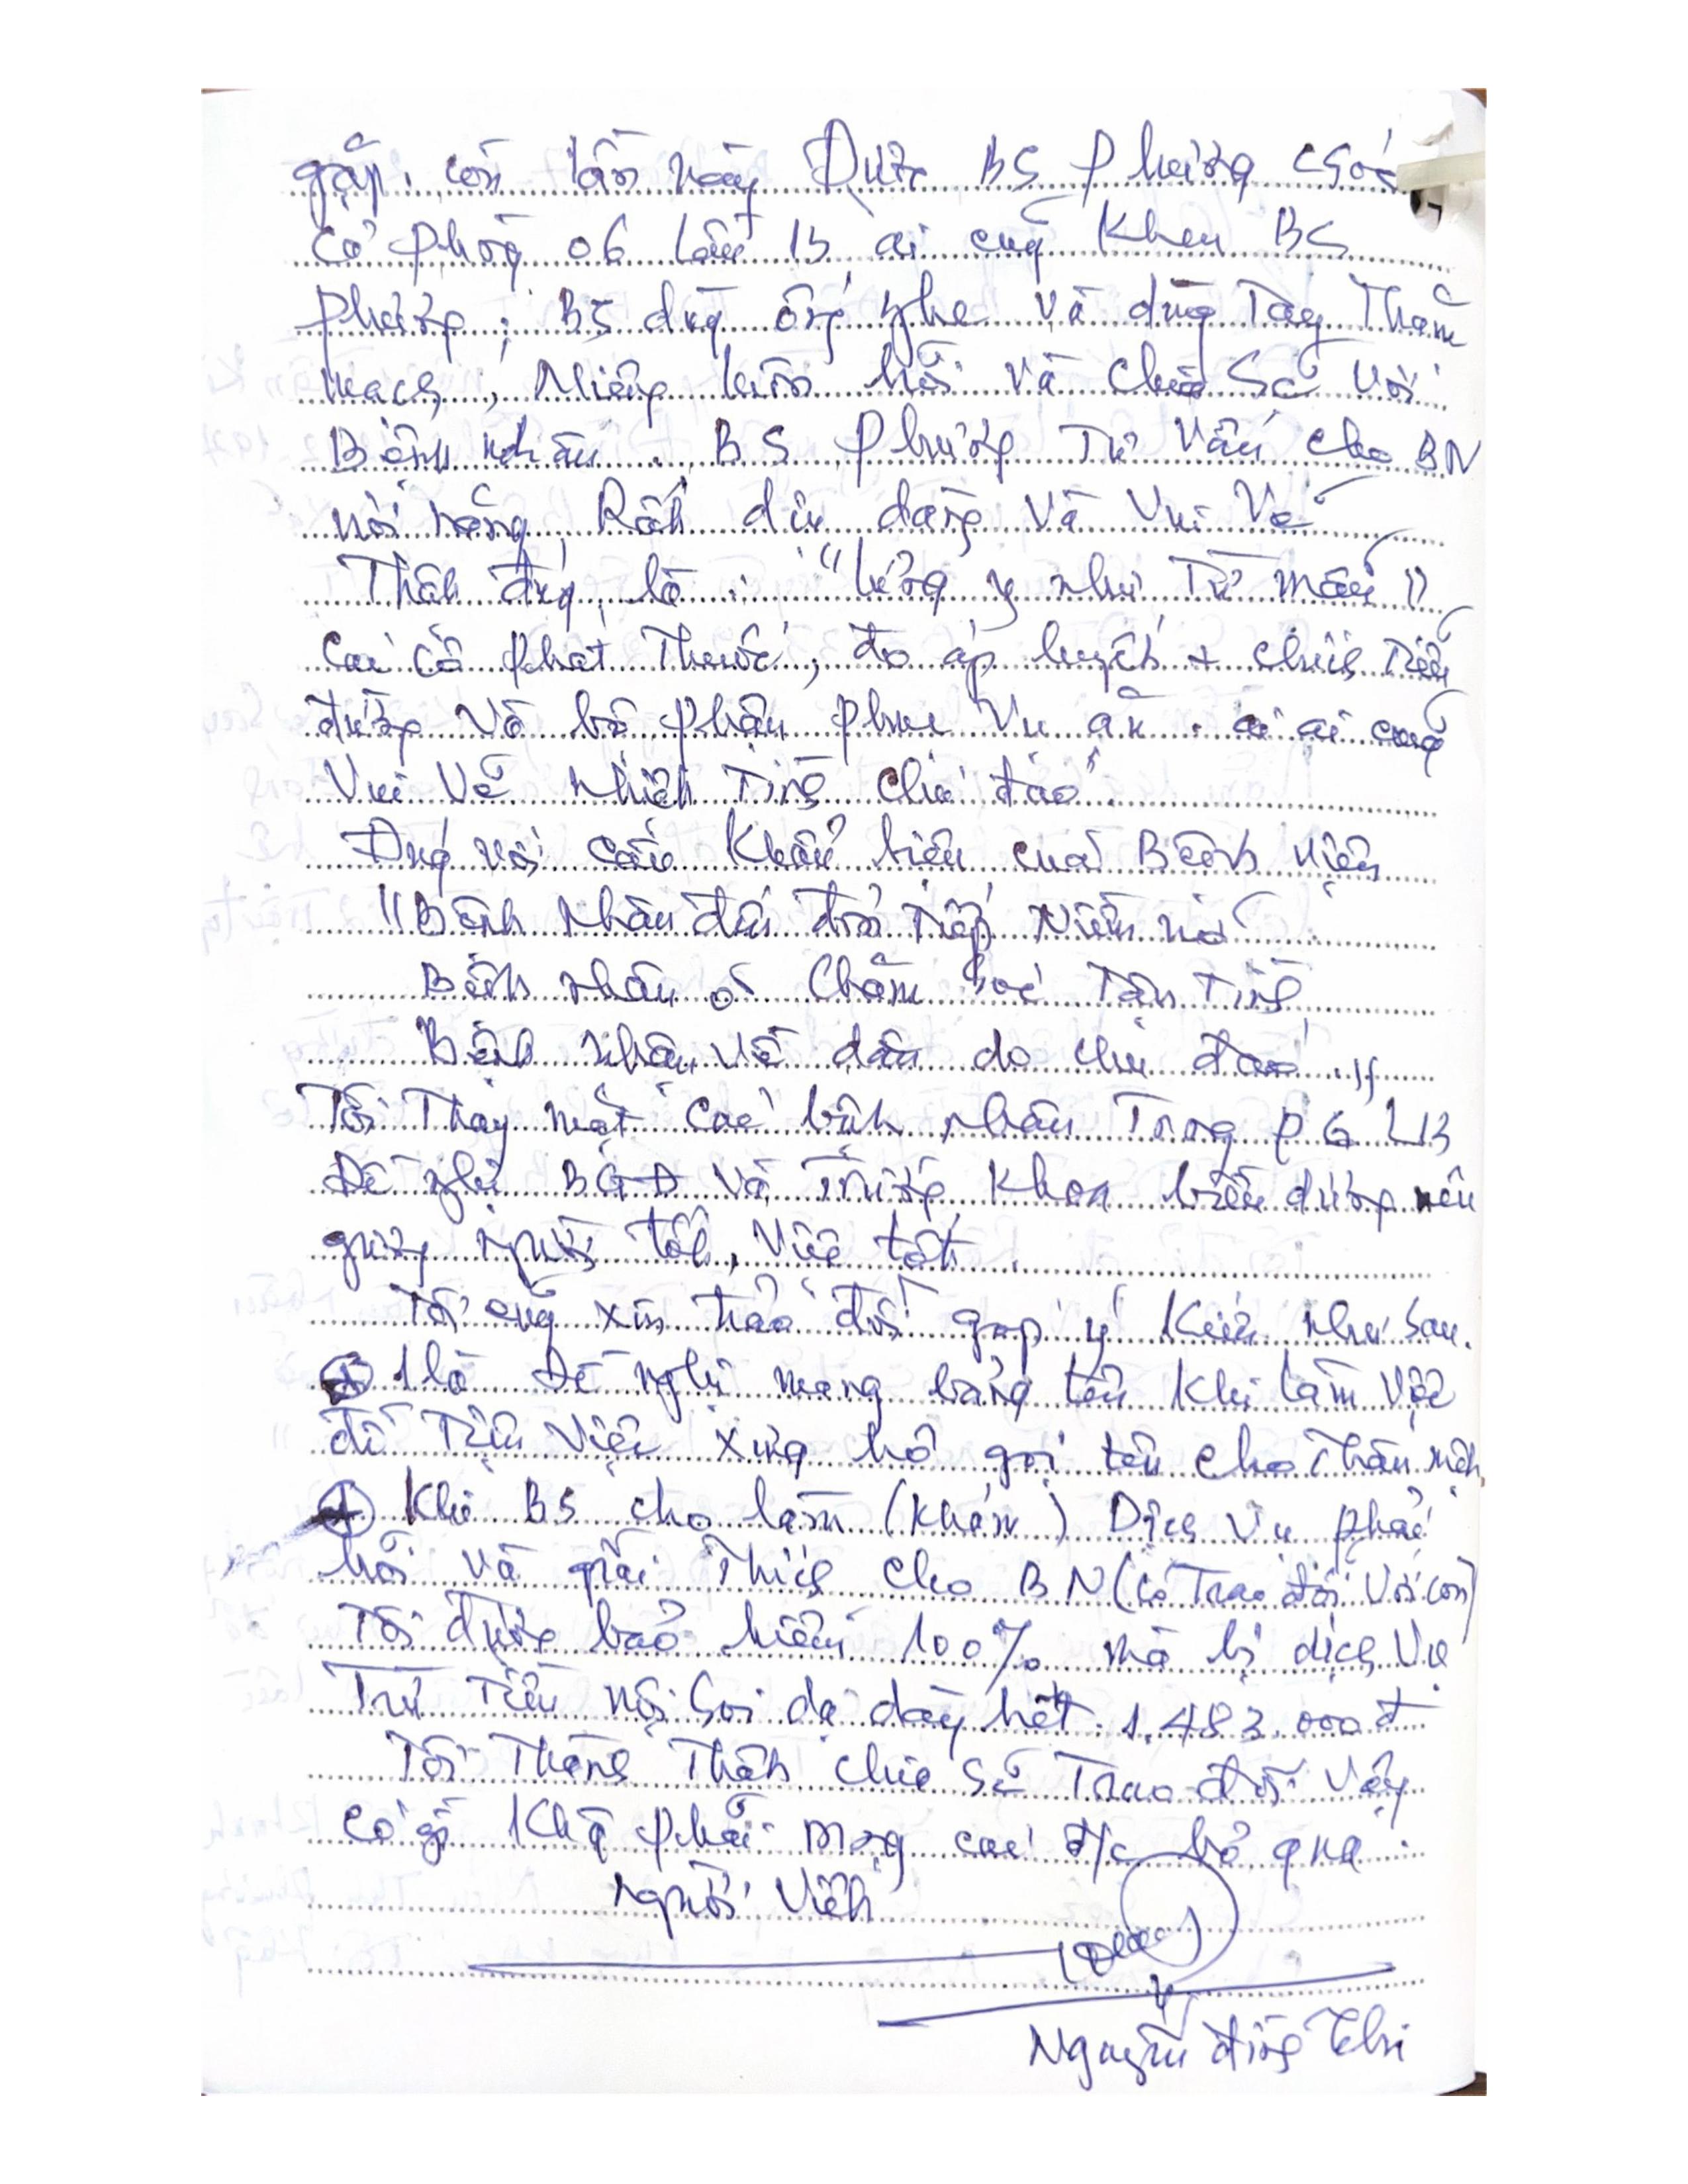 gặp. còn lần này Được BS Phương CSóc
Cả phòng 06 lầu 13 ai cũng khen BS
Phương; BS dùng ống nghe và dùng Tay Thăm
mạch, Miệng luôn hỏi và chia sẻ với
Bệnh nhân. BS Phương Tư vấn cho BN
nói năng Rất dịu dàng và Vui Vẻ
Thật đúng là: "lương y như Từ mẫu"
Các cô phát Thuốc, đo áp huyết + chích Tiểu
đường và bộ phận phục vụ ăn. ai ai cũng
Vui Vẻ nhiệt Tình Chu đáo
Đúng với câu Khẩu hiệu của Bệnh viện
"Bệnh nhân đến đón Tiếp Niềm nở
Bệnh nhân ở Chăm sóc Tận Tình
Bệnh nhân về dặn dò chu đáo."
Tôi Thay mặt các bệnh nhân Trong P6 L13
Đề nghị BGĐ và Trưởng Khoa biểu dương nêu
gương người tốt, việc tốt
Tôi cũng xin trao đổi góp ý kiến như sau.
⊕ 1 là Đề nghị mang bảng tên khi làm việc
để Tiện Việc xưng hô gọi tên cho Thân mật.
⊕ Khi BS cho làm (khám) Dịch vụ phải
hỏi và giải Thích cho BN (Có Trao đổi với con)
Tôi được bảo hiểm 100% mà bị dịch vụ
Trừ Tiền nội soi dạ dày hết 1.483.000đ
Tôi Thành Thật chia sẻ Trao đổi Vậy
có gì Không phải mong các đ/c bỏ qua.
Người Viết
Nguyễn đình Thi